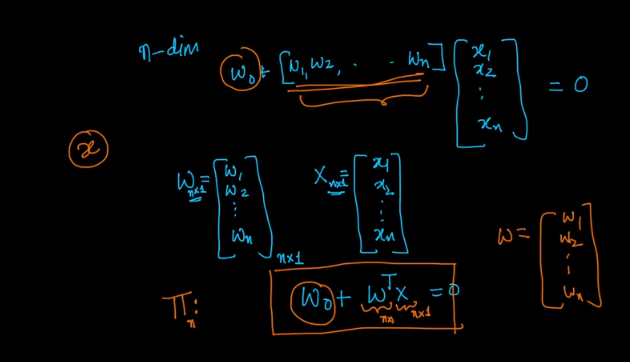 n-dim
w₀ + [w₁, w₂, . . wₙ] [x₁ x₂ ⋮ xₙ] = 0
x
Wₙₓ₁ = [w₁ w₂ ⋮ wₙ]ₙₓ₁ Xₙₓ₁ = [x₁ x₂ ⋮ xₙ]
w = [w₁ w₂ ⋮ wₙ]
πₙ: w₀ + wᵀx = 0
n×1